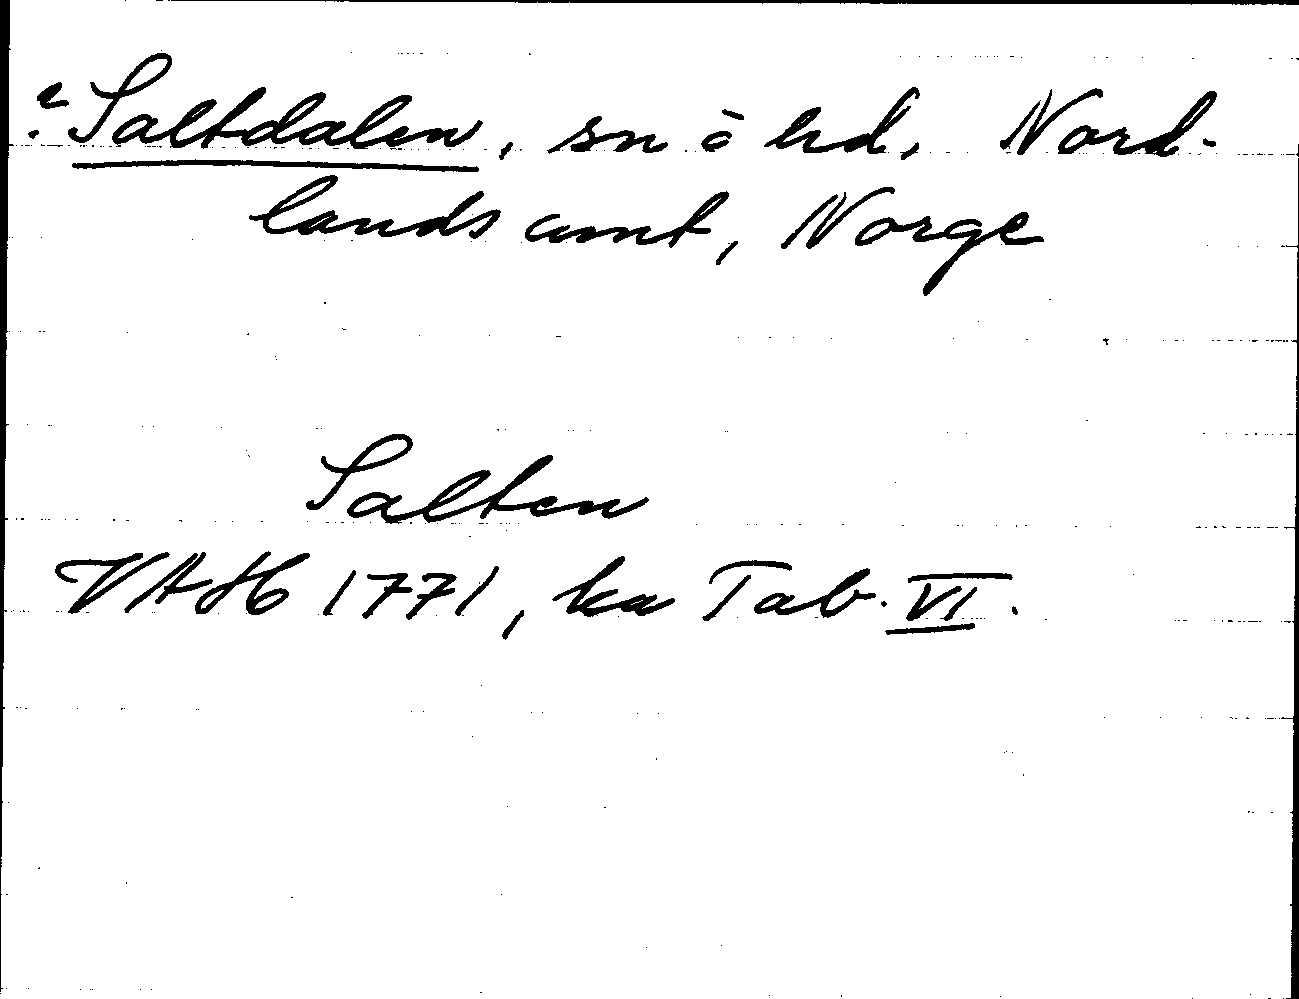 ? Saltdalen, sn o hd, Nord-
lands amt, Norge
Salten
VAH 1771, ka Tab. VI.